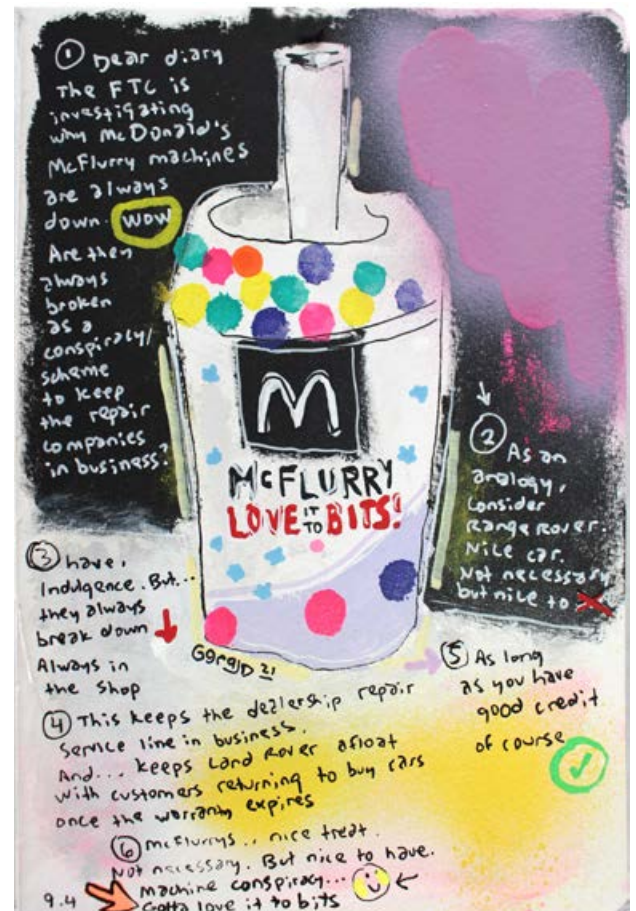 ① Dear diary
The FTC is
investigating
why McDonald's
McFlurry machines
are always
down. WOW
Are they
always
broken
as a
conspiracy/
scheme
to keep
the repair
companies
in business?
M
McFLURRY
LOVE IT TO BITS!
② As an
analogy,
consider
Range Rover.
Nice car.
Not necessary
but nice to
③ have.
Indulgence. But...
they always
break down
Always in
the shop
④ This keeps the dealership repair
service line in business.
And... keeps Land Rover afloat
with customers returning to buy cars
once the warranty expires
⑤ As long
as you have
good credit
of course
⑥ McFlurrys.. nice treat.
Not necessary. But nice to have.
Machine conspiracy...
Gotta love it to bits
9.4